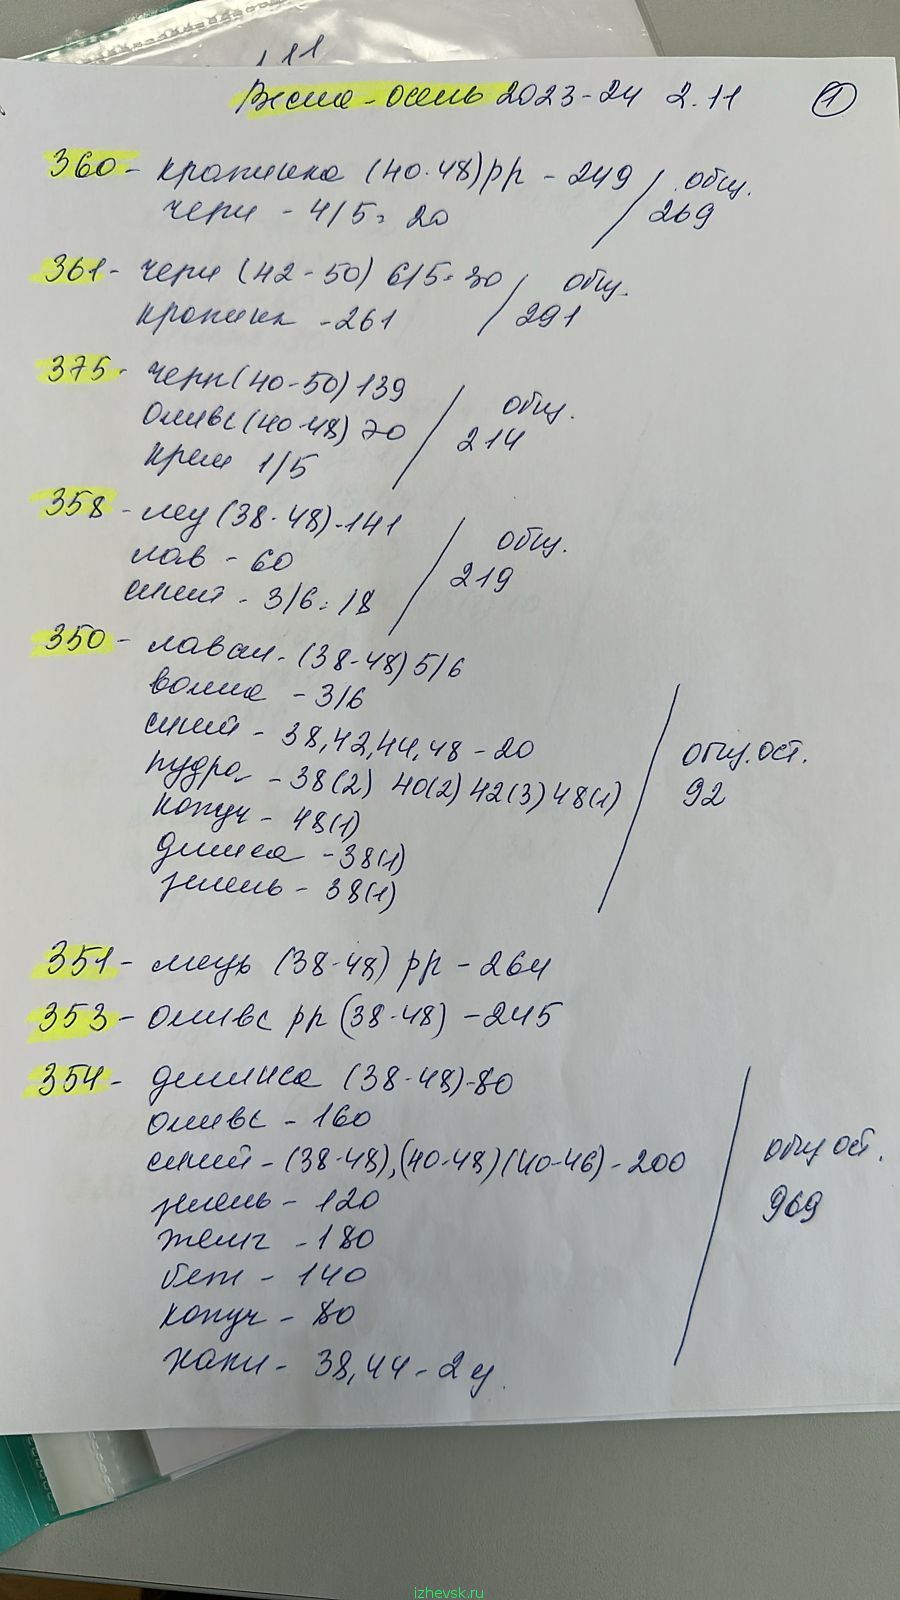 Весна - осень 2023-24 2.11 1
360 - крапинка (40-48) рр - 249 / общ.
черн - 4/5 = 20 269
361 - черн (42-50) 6/5 = 30 / общ.
крапинк - 261 291
375 - черн (40-50) 139 / общ.
оливк (40-48) 70 214
крем 1/5
358 - мяу (38-48) - 141 / общ.
лав - 60 219
синий - 3/6 = 18
350 - лаван - (38-48) 5/6
волна - 3/6
синий - 38,42,44,48 - 20 / общ. ост.
пудра - 38(2) 40(2) 42(3) 48(1) 92
капуч - 48(1)
джинса - 38(1)
зелень - 38(1)
351 - (38-48) рр - 264
353 - оливк рр (38-48) - 245
354 - джинса (38-48) - 80
оливк - 160
синий - (38-48), (40-48) (40-46) - 200 / общ ост.
зелень - 120 969
желт - 180
беж - 140
капуч - 80
хаки - 38,44 - 2 ц.
izhevsk.ru